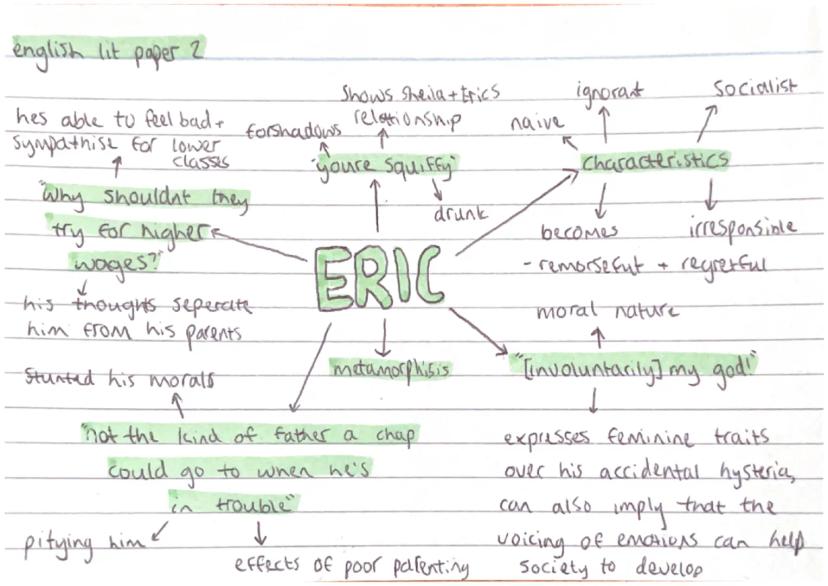 english lit paper 2
hes able to feel bad +
sympathise for lower
classes
"Why shouldnt they
try for higher
wages?"
his thoughts seperate
him from his parents
forshadows
shows sheila + Erics
relationship
"youre squiffy"
drunk
naive
ignorant
socialist
characteristics
becomes
- remorseful + regretful
irresponsible
ERIC
metamorphisis
moral nature
"[involuntarily] my god!"
expresses feminine traits
over his accidental hysteria,
can also imply that the
voicing of emotions can help
society to develop
stunted his morals
"not the kind of father a chap
could go to when he's
in trouble"
pitying him
effects of poor parenting